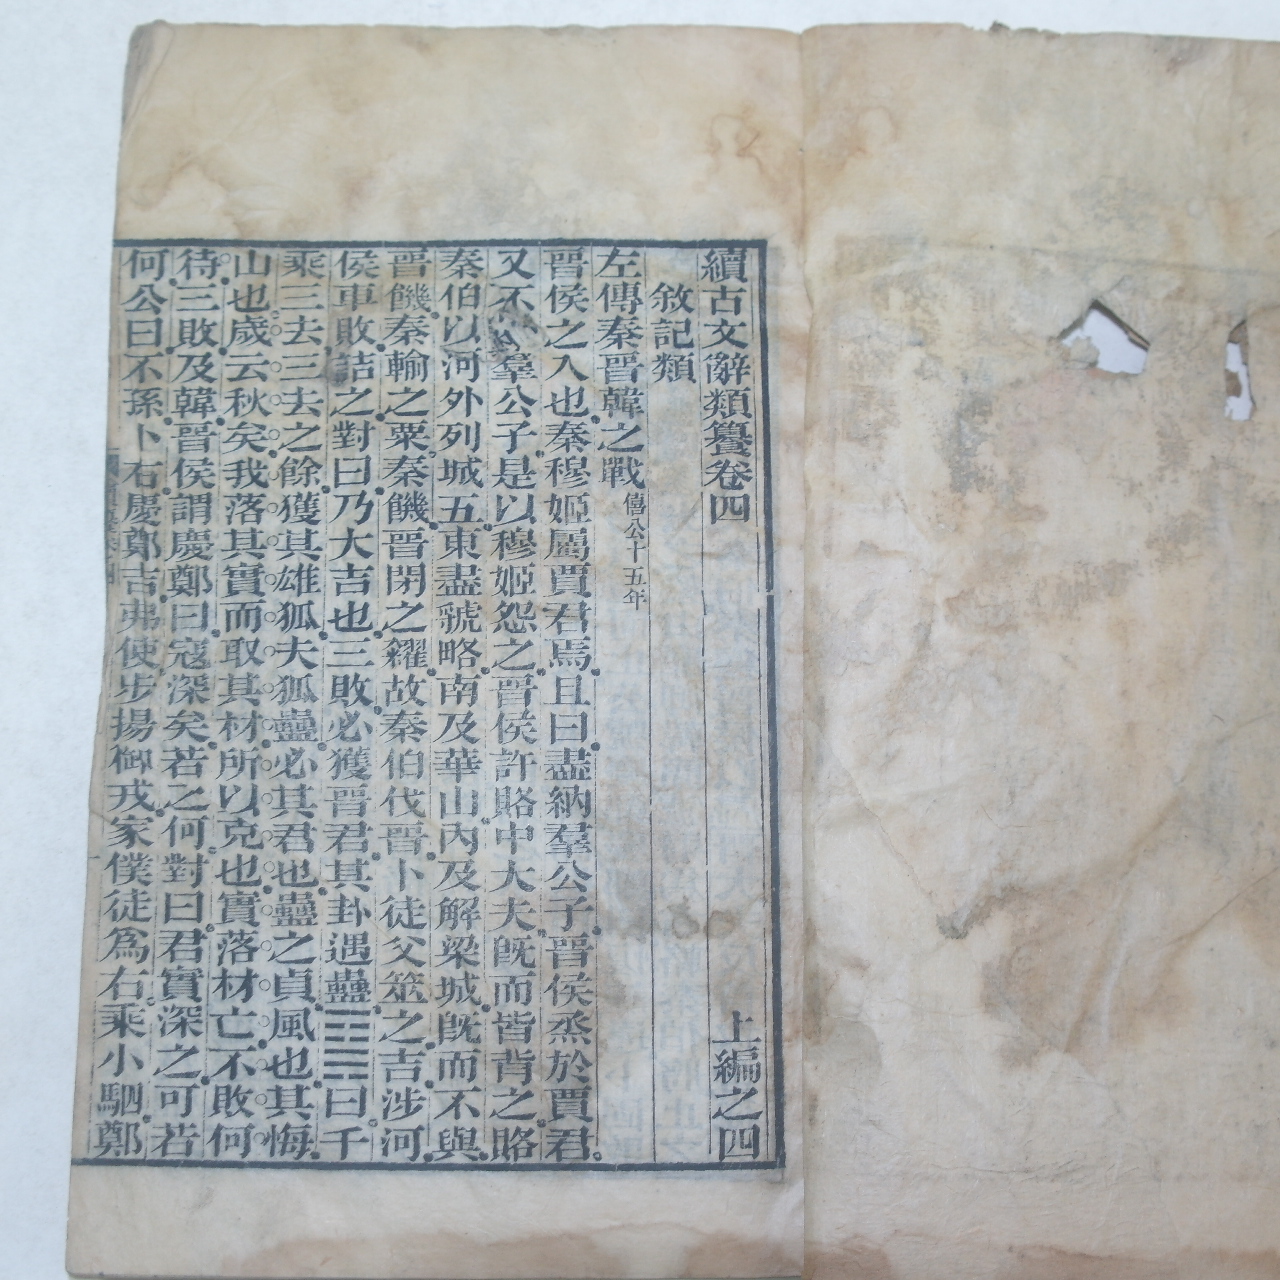 續古文辭類纂卷四 上編之四
敘記類
左傳秦晉韓之戰 僖公十五年
晉侯之入也秦穆姬屬賈君焉且曰盡納羣公子晉侯烝於賈君
又不納羣公子是以穆姬怨之晉侯許賂中大夫旣而皆背之賂
秦伯以河外列城五東盡虢略南及華山內及解梁城旣而不與
晉饑秦輸之粟秦饑晉閉之糴故秦伯伐晉卜徒父筮之吉涉河
侯車敗詰之對曰乃大吉也三敗必獲晉君其卦遇蠱曰千
乘三去三去之餘獲其雄狐夫狐蠱必其君也蠱之貞風也其悔
山也歲云秋矣我落其實而取其材所以克也實落材亡不敗何
待三敗及韓晉侯謂慶鄭曰寇深矣若之何對曰君實深之可若
何公曰不孫卜右慶鄭吉弗使步揚御戎家僕徒爲右乘小駟鄭